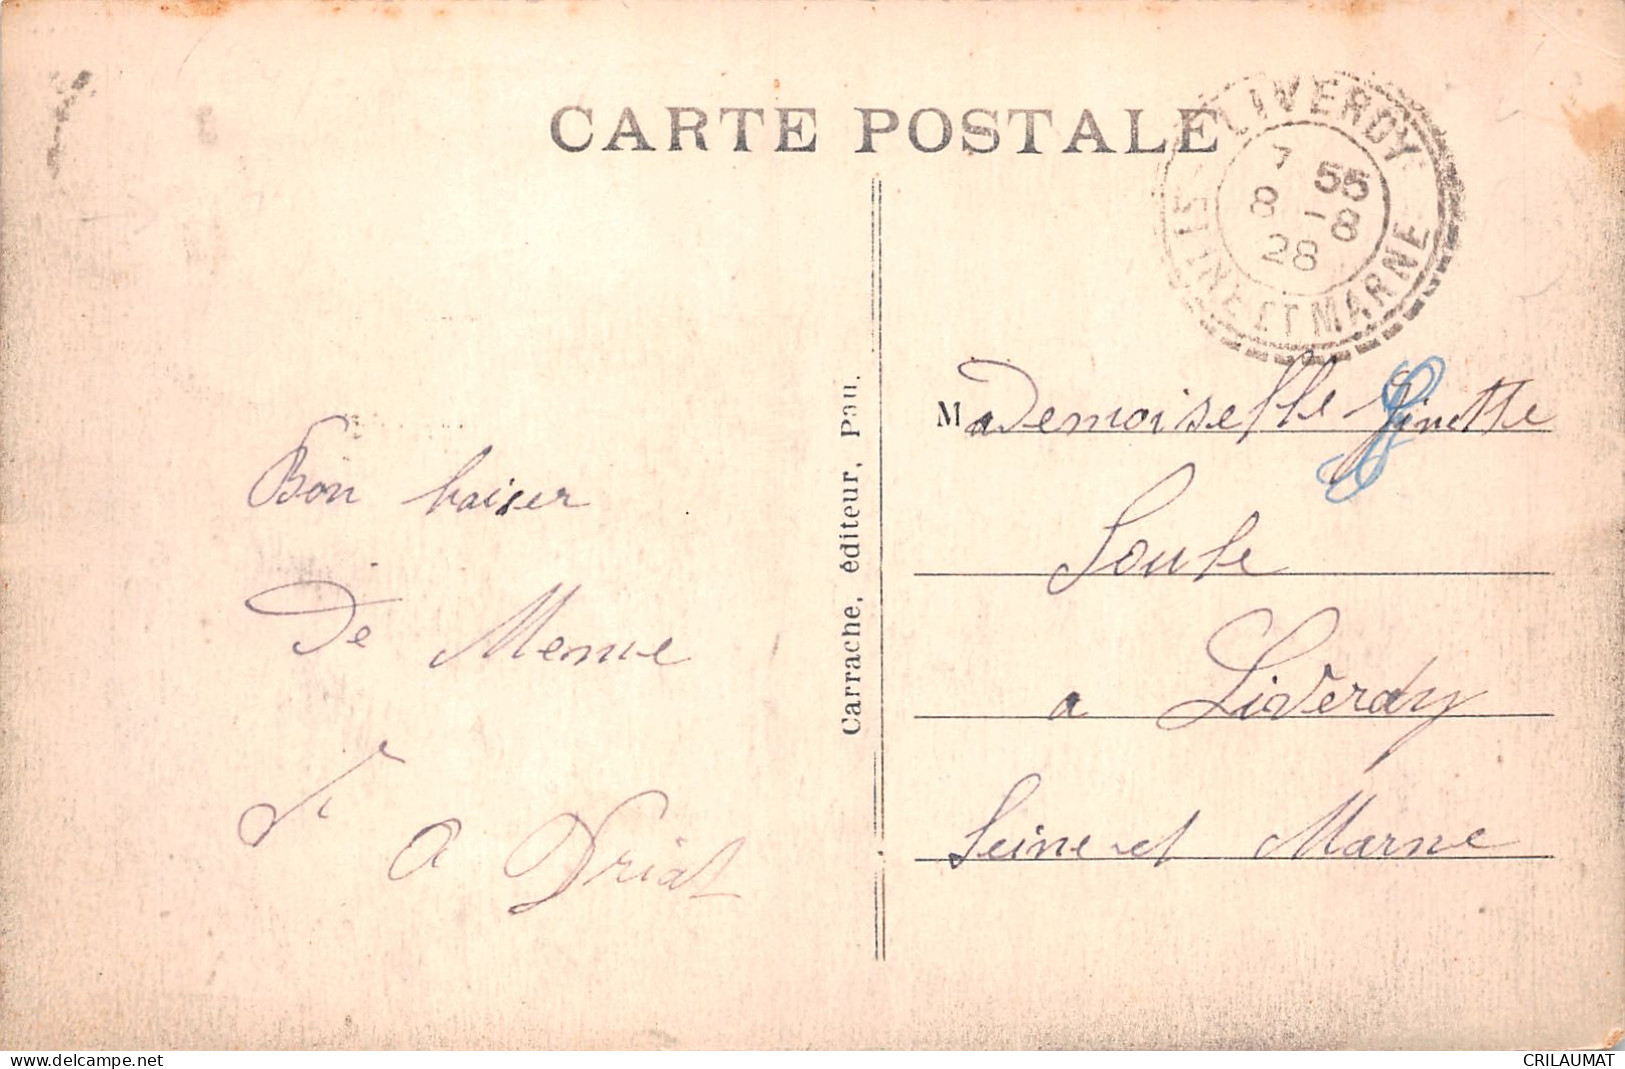 CARTE POSTALE
LIVERDY
7 55
8 -8
28
SEINE ET MARNE
Mademoiselle Ginette
a Liverdy
Seine et Marne
Bon baiser
De
A Driat
Carrache, éditeur, Pau.
www.delcampe.net
CRILAUMAT